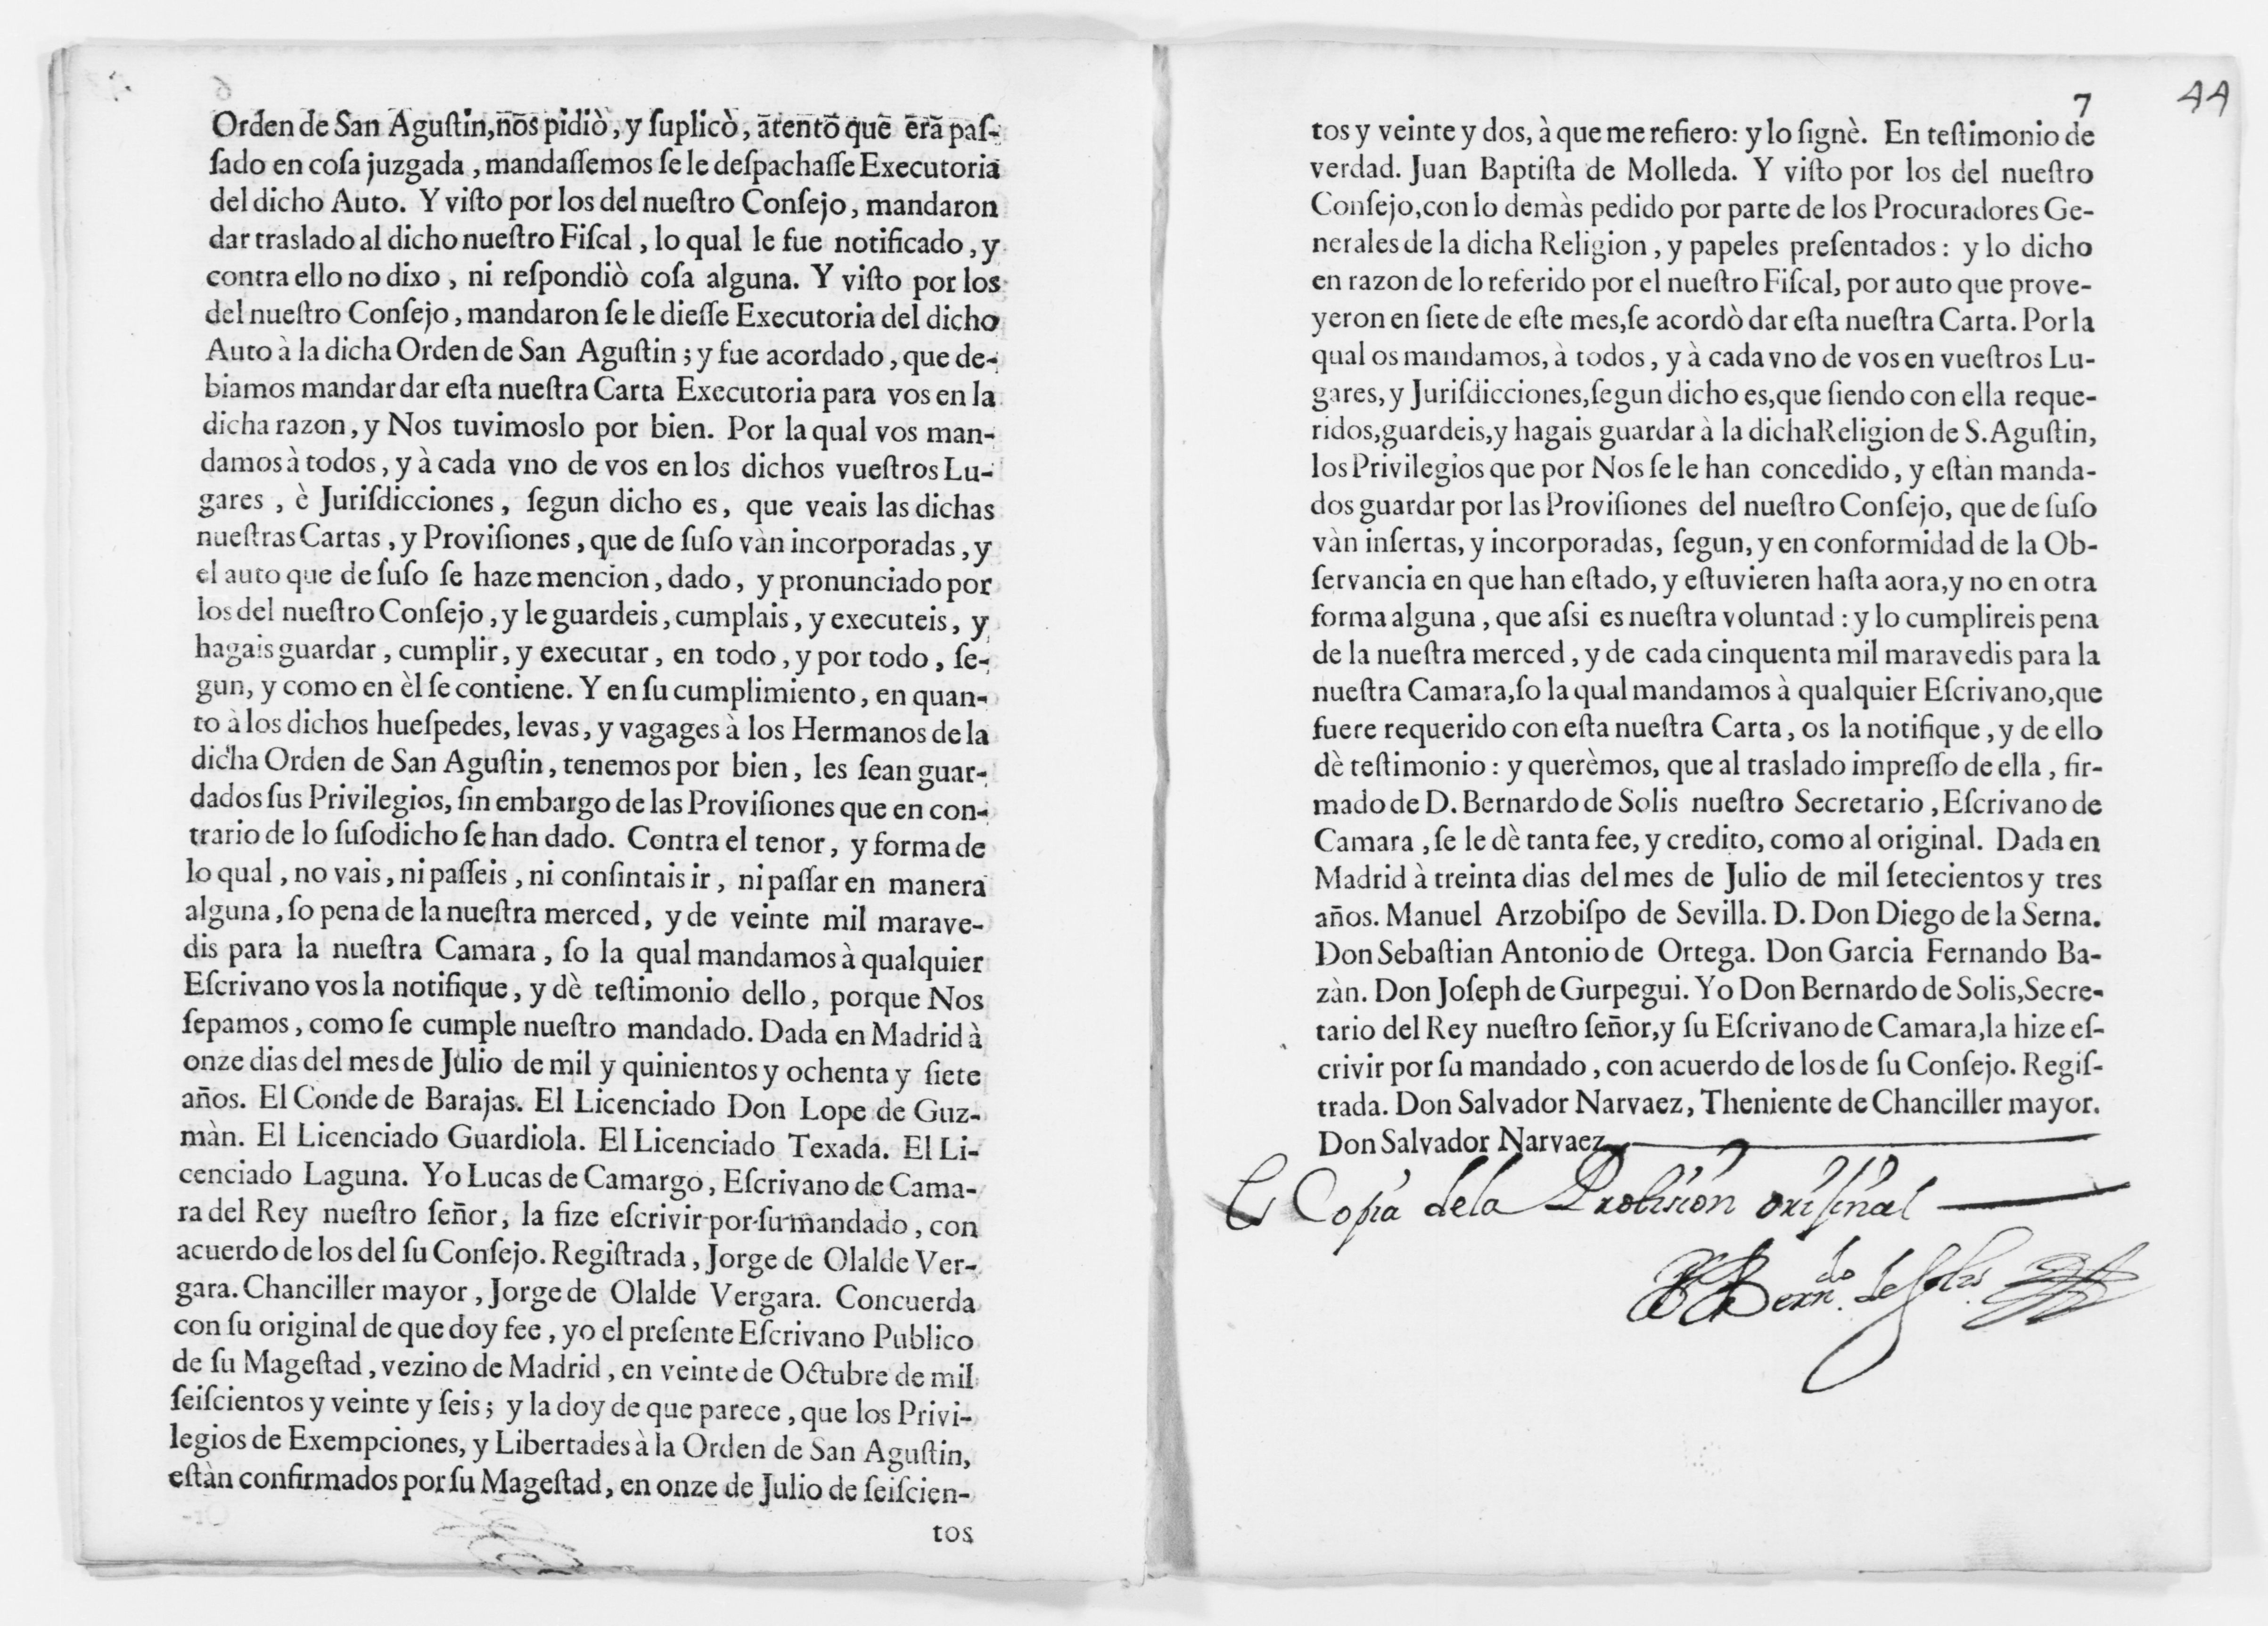 Orden de San Aguſtin, nos pidiò, y ſuplicò, atento que era paſ-
ſado en coſa juzgada, mandaſſemos ſe le deſpachaſſe Executoria
del dicho Auto. Y viſto por los del nueſtro Conſejo, mandaron
dar traslado al dicho nueſtro Fiſcal, lo qual le fue notificado, y
contra ello no dixo, ni reſpondiò coſa alguna. Y viſto por los
del nueſtro Conſejo, mandaron ſe le dieſſe Executoria del dicho
Auto à la dicha Orden de San Aguſtin; y fue acordado, que de-
biamos mandar dar eſta nueſtra Carta Executoria para vos en la
dicha razon, y Nos tuvimoslo por bien. Por la qual vos man-
damos à todos, y à cada vno de vos en los dichos vueſtros Lu-
gares, è Juriſdicciones, ſegun dicho es, que veais las dichas
nueſtras Cartas, y Proviſiones, que de ſuſo vàn incorporadas, y
el auto que de ſuſo ſe haze mencion, dado, y pronunciado por
los del nueſtro Conſejo, y le guardeis, cumplais, y executeis, y
hagais guardar, cumplir, y executar, en todo, y por todo, ſe-
gun, y como en èl ſe contiene. Y en ſu cumplimiento, en quan-
to à los dichos hueſpedes, levas, y vagages à los Hermanos de la
dicha Orden de San Aguſtin, tenemos por bien, les ſean guar-
dados ſus Privilegios, ſin embargo de las Proviſiones que en con-
trario de lo ſuſodicho ſe han dado. Contra el tenor, y forma de
lo qual, no vais, ni paſſeis, ni conſintais ir, ni paſſar en manera
alguna, ſo pena de la nueſtra merced, y de veinte mil marave-
dis para la nueſtra Camara, ſo la qual mandamos à qualquier
Eſcrivano vos la notifique, y dè teſtimonio dello, porque Nos
ſepamos, como ſe cumple nueſtro mandado. Dada en Madrid à
onze dias del mes de Julio de mil y quinientos y ochenta y ſiete
años. El Conde de Barajas. El Licenciado Don Lope de Guz-
màn. El Licenciado Guardiola. El Licenciado Texada. El Li-
cenciado Laguna. Yo Lucas de Camargo, Eſcrivano de Cama-
ra del Rey nueſtro ſeñor, la fize eſcrivir por ſu mandado, con
acuerdo de los del ſu Conſejo. Regiſtrada, Jorge de Olalde Ver-
gara. Chanciller mayor, Jorge de Olalde Vergara. Concuerda
con ſu original de que doy fee, yo el preſente Eſcrivano Publico
de ſu Mageſtad, vezino de Madrid, en veinte de Octubre de mil
ſeiſcientos y veinte y ſeis; y la doy de que parece, que los Privi-
legios de Exempciones, y Libertades à la Orden de San Aguſtin,
eſtàn confirmados por ſu Mageſtad, en onze de Julio de ſeiſcien-
tos
7
44
tos y veinte y dos, à que me refiero: y lo ſignè. En teſtimonio de
verdad. Juan Baptiſta de Molleda. Y viſto por los del nueſtro
Conſejo, con lo demàs pedido por parte de los Procuradores Ge-
nerales de la dicha Religion, y papeles preſentados: y lo dicho
en razon de lo referido por el nueſtro Fiſcal, por auto que prove-
yeron en ſiete de eſte mes, ſe acordò dar eſta nueſtra Carta. Por la
qual os mandamos, à todos, y à cada vno de vos en vueſtros Lu-
gares, y Juriſdicciones, ſegun dicho es, que ſiendo con ella reque-
ridos, guardeis, y hagais guardar à la dicha Religion de S. Aguſtin,
los Privilegios que por Nos ſe le han concedido, y eſtàn manda-
dos guardar por las Proviſiones del nueſtro Conſejo, que de ſuſo
vàn inſertas, y incorporadas, ſegun, y en conformidad de la Ob-
ſervancia en que han eſtado, y eſtuvieren haſta aora, y no en otra
forma alguna, que aſsi es nueſtra voluntad: y lo cumplireis pena
de la nueſtra merced, y de cada cinquenta mil maravedis para la
nueſtra Camara, ſo la qual mandamos à qualquier Eſcrivano, que
fuere requerido con eſta nueſtra Carta, os la notifique, y de ello
dè teſtimonio: y querèmos, que al traslado impreſſo de ella, fir-
mado de D. Bernardo de Solis nueſtro Secretario, Eſcrivano de
Camara, ſe le dè tanta fee, y credito, como al original. Dada en
Madrid à treinta dias del mes de Julio de mil ſetecientos y tres
años. Manuel Arzobiſpo de Sevilla. D. Don Diego de la Serna.
Don Sebaſtian Antonio de Ortega. Don Garcia Fernando Ba-
zàn. Don Joſeph de Gurpegui. Yo Don Bernardo de Solis, Secre-
tario del Rey nueſtro ſeñor, y ſu Eſcrivano de Camara, la hize eſ-
crivir por ſu mandado, con acuerdo de los de ſu Conſejo. Regiſ-
trada. Don Salvador Narvaez, Theniente de Chanciller mayor.
Don Salvador Narvaez
Es Copia dela Probision original
Berndo. de Solis